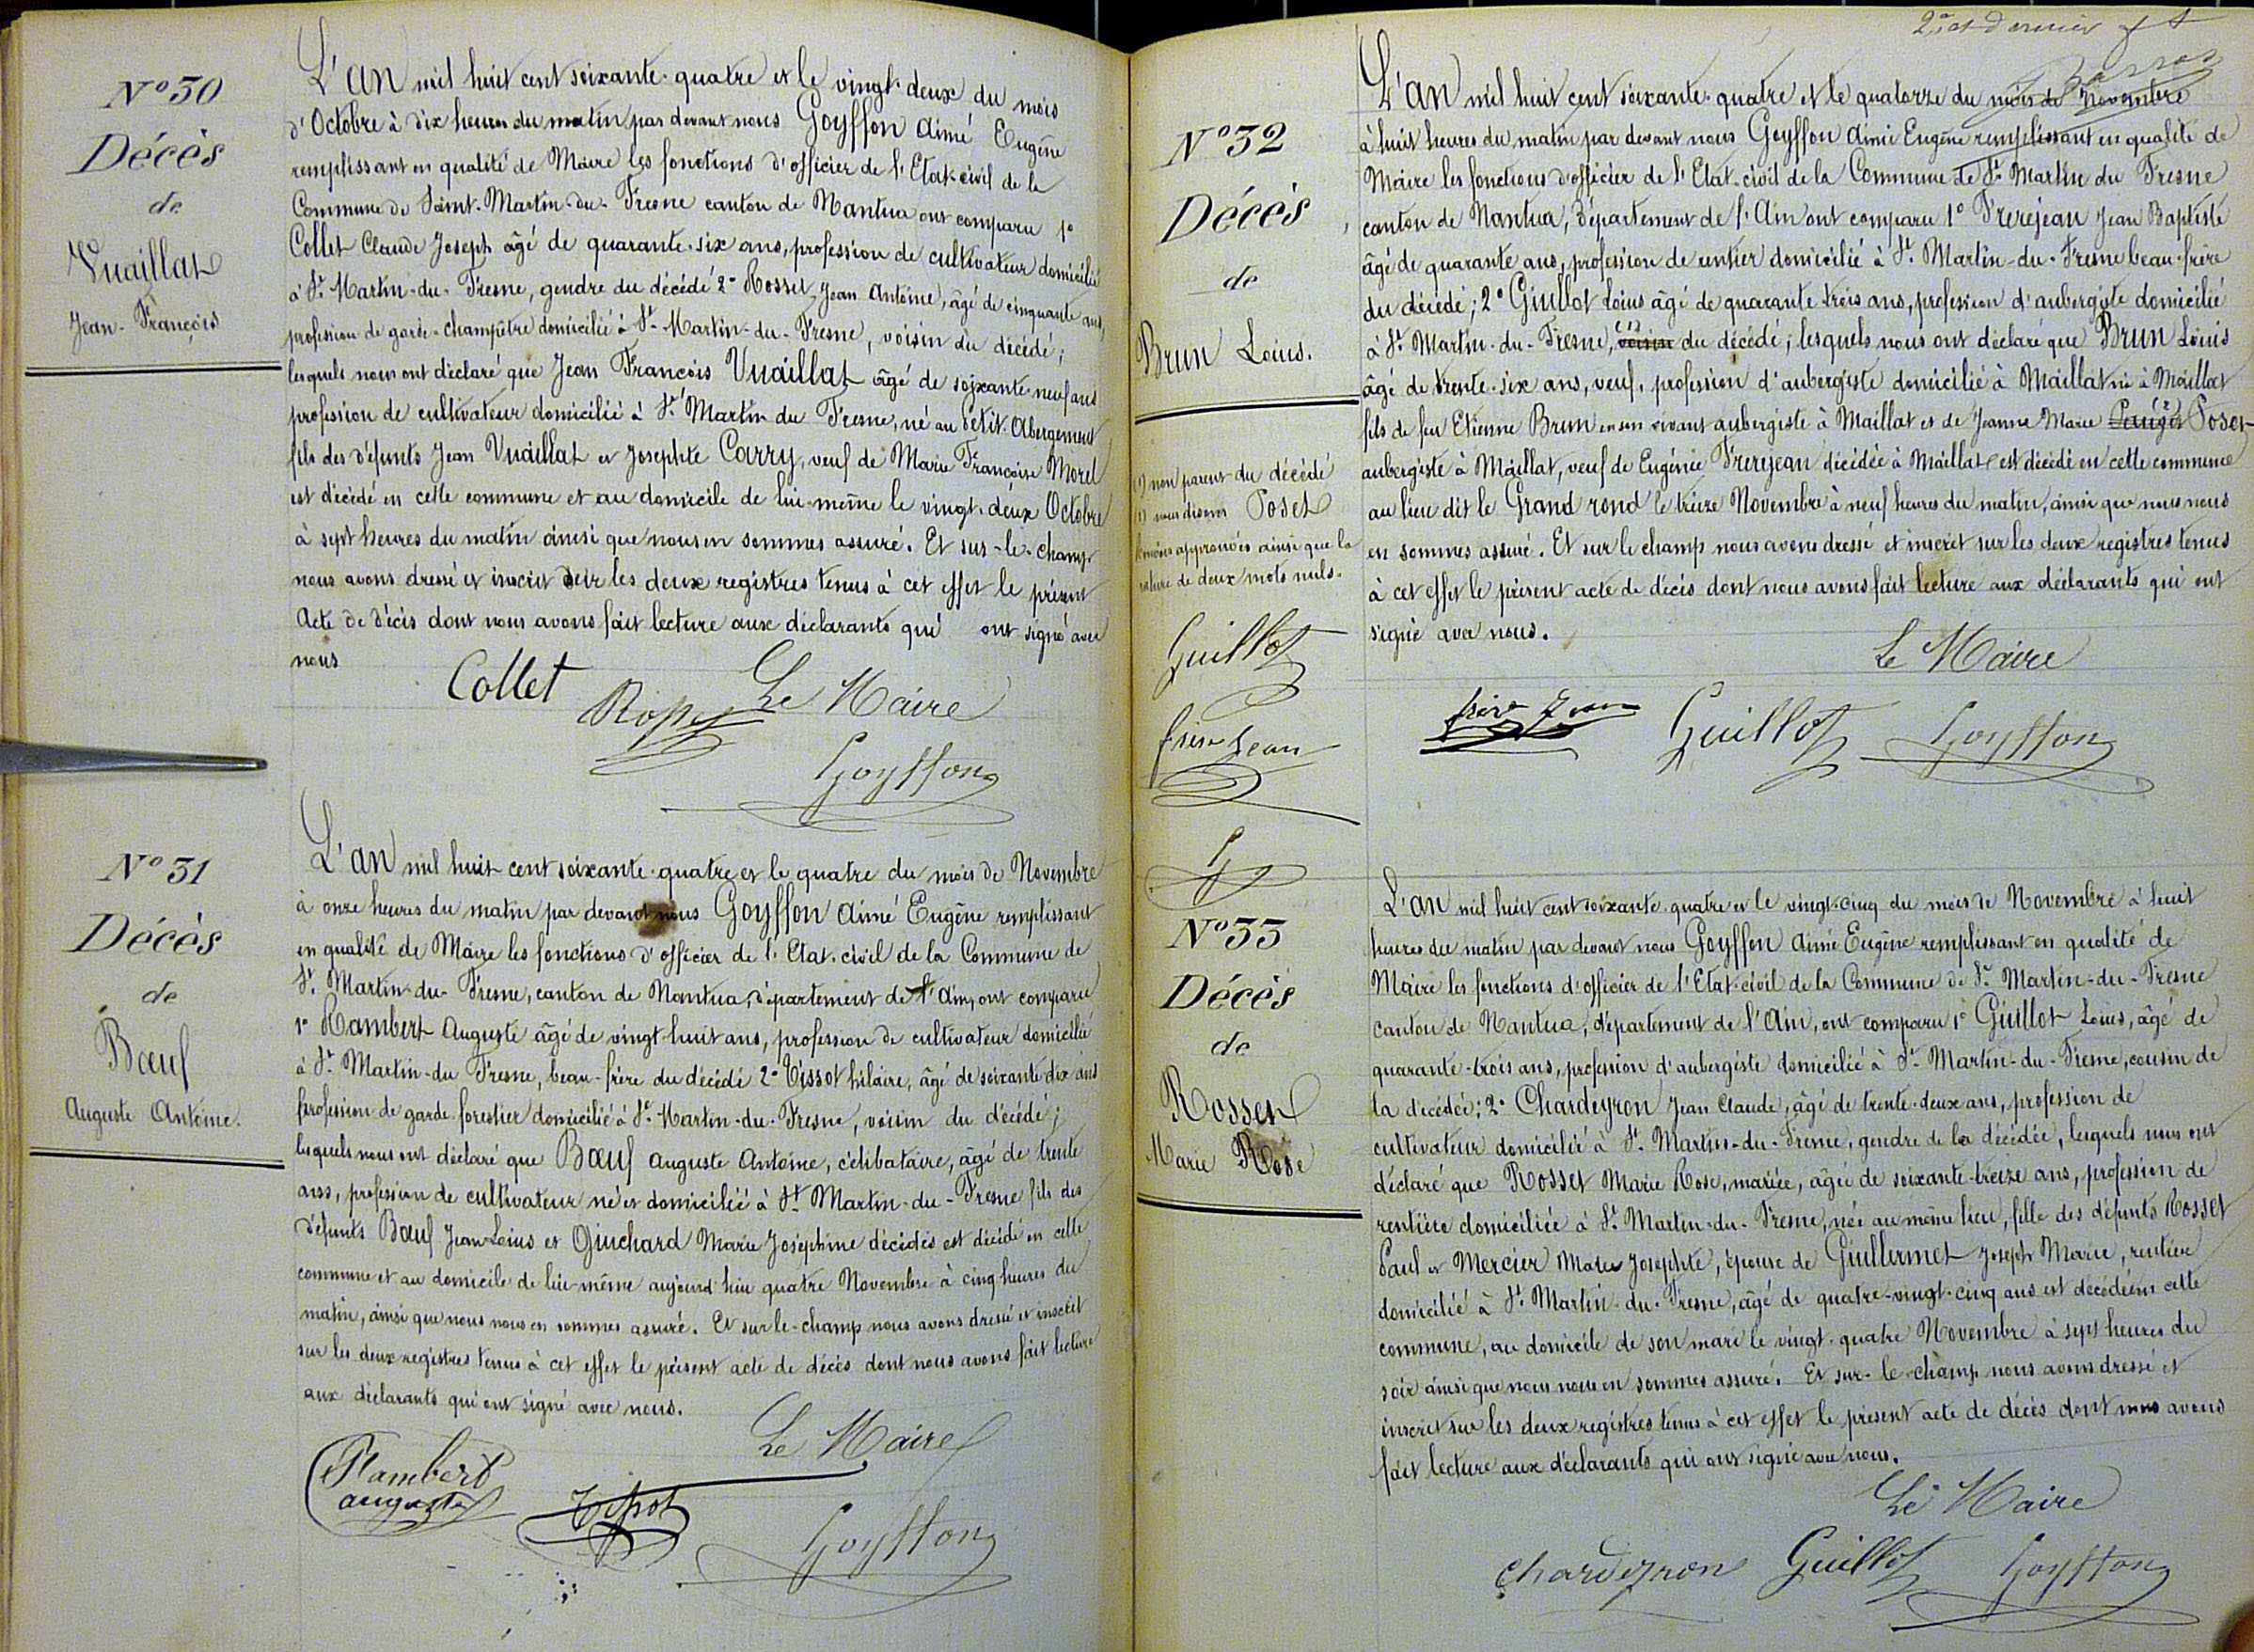 N° 30
Décès
de
Vuaillat
Jean-François
L'an mil huit cent soixante-quatre et le vingt-deux du mois
d'Octobre à dix heures du matin par devant nous Goyffon Aimé Eugène
remplissant en qualité de Maire les fonctions d'officier de l'Etat-civil de la
Commune de Saint-Martin-du-Fresne canton de Nantua ont comparu 1°
Collet Claude Joseph âgé de quarante-six ans, profession de cultivateur domicilié
à St. Martin-du-Fresne, gendre du décédé 2° Rosset Jean Antoine, âgé de cinquante ans,
profession de garde-champêtre domicilié à St-Martin-du-Fresne, voisin du décédé;
lesquels nous ont déclaré que Jean François Vuaillat âgé de soixante-neuf ans
profession de cultivateur domicilié à St. Martin du Fresne, né au Petit-Abergement
fils des défunts Jean Vuaillat et Josephte Carry, veuf de Marie Françoise Morel
est décédé en cette commune et au domicile de lui-même le vingt-deux Octobre
à sept heures du matin ainsi que nous en sommes assuré. Et sur-le-champ
nous avons dressé et inscrit sur les deux registres tenus à cet effet le présent
Acte de décès dont nous avons fait lecture aux déclarants qui ont signé avec
nous
Collet
Rosset
Le Maire
Goyffon
N° 31
Décès
de
Bœuf
Auguste Antoine.
L'an mil huit cent soixante-quatre et le quatre du mois de Novembre
à onze heures du matin par devant nous Goyffon Aimé Eugène remplissant
en qualité de Maire les fonctions d'officier de l'Etat-civil de la Commune de
St. Martin-du-Fresne, canton de Nantua, département de l'Ain, ont comparu
1° Rambert Auguste âgé de vingt-huit ans, profession de cultivateur domicilié
à St. Martin-du Fresne, beau-frère du décédé 2° Tissot hilaire, âgé de soixante-dix ans
profession de garde-forestier domicilié à St-Martin-du-Fresne, voisin du décédé;
lesquels nous ont déclaré que Bœuf Auguste Antoine, célibataire, âgé de trente
ans, profession de cultivateur né et domicilié à St Martin-du-Fresne fils des
défunts Bœuf Jean-Loius et Guichard Marie Joséphine décédés est décédé en cette
commune et au domicile de lui-même aujourd'hui quatre Novembre à cinq heures du
matin, ainsi que nous nous en sommes assuré. Et sur-le-champ nous avons dressé et inscrit
sur les deux registres tenus à cet effet le présent acte de décès dont nous avons fait lecture
aux déclarants qui ont signé avec nous.
Le Maire
Rambert
auguste
Tissot
Goyffon
2e et dernier
N° 32
Décès
de
Brun Loius.
(1) non parent du décédé
(2) nous disons Poset
Renvois approuvés ainsi que la
rature de deux mots nuls.
Guillot
frère Jean
G
L'an mil huit cent soixante-quatre et le quatorze du mois de Novembre
à huit heures du matin par devant nous Goyffon Aimé Eugène remplissant en qualité de
Maire les fonctions d'officier de l'Etat-civil de la Commune de St. Martin du Fresne
canton de Nantua, département de l'Ain ont comparu 1° Frerejean Jean Baptiste
âgé de quarante ans, profession de rentier domicilié à St. Martin-du-Fresne beau-frère
du décédé; 2° Giullot Loius âgé de quarante trois ans, profession d'aubergiste domicilié
à St. Martin-du-Fresne, (1) voisin du décédé; lesquels nous ont déclaré que Brun Loius
âgé de trente-six ans, veuf, profession d'aubergiste domicilié à Maillat né à Maillat
fils de feu Etienne Brun en son vivant aubergiste à Maillat et de Jeanne Marie (2) Poset
aubergiste à Maillat, veuf de Eugénie Frerejean décédée à Maillat est décédé en cette commune
au lieu dit le Grand rond le treize Novembre à neuf heures du matin, ainsi que nous nous
en sommes assuré. Et sur le champ nous avons dressé et inscrit sur les deux registres tenus
à cet effet le présent acte de décès dont nous avons fait lecture aux déclarants qui ont
signé avec nous.
Le Maire
frère Jean
Guillot
Goyffon
N° 33
Décès
de
Rosset
Marie Rose
L'an mil huit cent soixante-quatre et le vingt-cinq du mois de Novembre à huit
heures du matin par devant nous Goyffon Aimé Eugène remplissant en qualité de
Maire les fonctions d'officier de l'Etat-civil de la Commune de St. Martin-du-Fresne
canton de Nantua, département de l'Ain, ont comparu 1° Giullot Loius, âgé de
quarante-trois ans, profession d'aubergiste domicilié à St Martin-du-Fresne, cousin de
la décédée; 2° Chardeyron Jean Claude, âgé de trente-deux ans, profession de
cultivateur domicilié à St. Martin-du-Fresne, gendre de la décédée, lesquels nous ont
déclaré que Rosset Marie Rose, mariée, âgée de soixante-treize ans, profession de
rentière domiciliée à St. Martin-du-Fresne, née au même lieu, fille des défunts Rosset
Paul et Mercier Marie Josephte, épouse de Giullermet Joseph Marie, rentier
domicilié à St. Martin-du-Fresne, âgé de quatre-vingt-cinq ans est décédée en cette
commune, au domicile de son mari le vingt-quatre Novembre à sept heures du
soir ainsi que nous nous en sommes assuré. Et sur-le-champ nous avons dressé et
inscrit sur les deux registres tenus à cet effet le présent acte de décès dont nous avons
fait lecture aux déclarants qui ont signé avec nous.
Le Maire
Chardeyron
Guillot
Goyffon